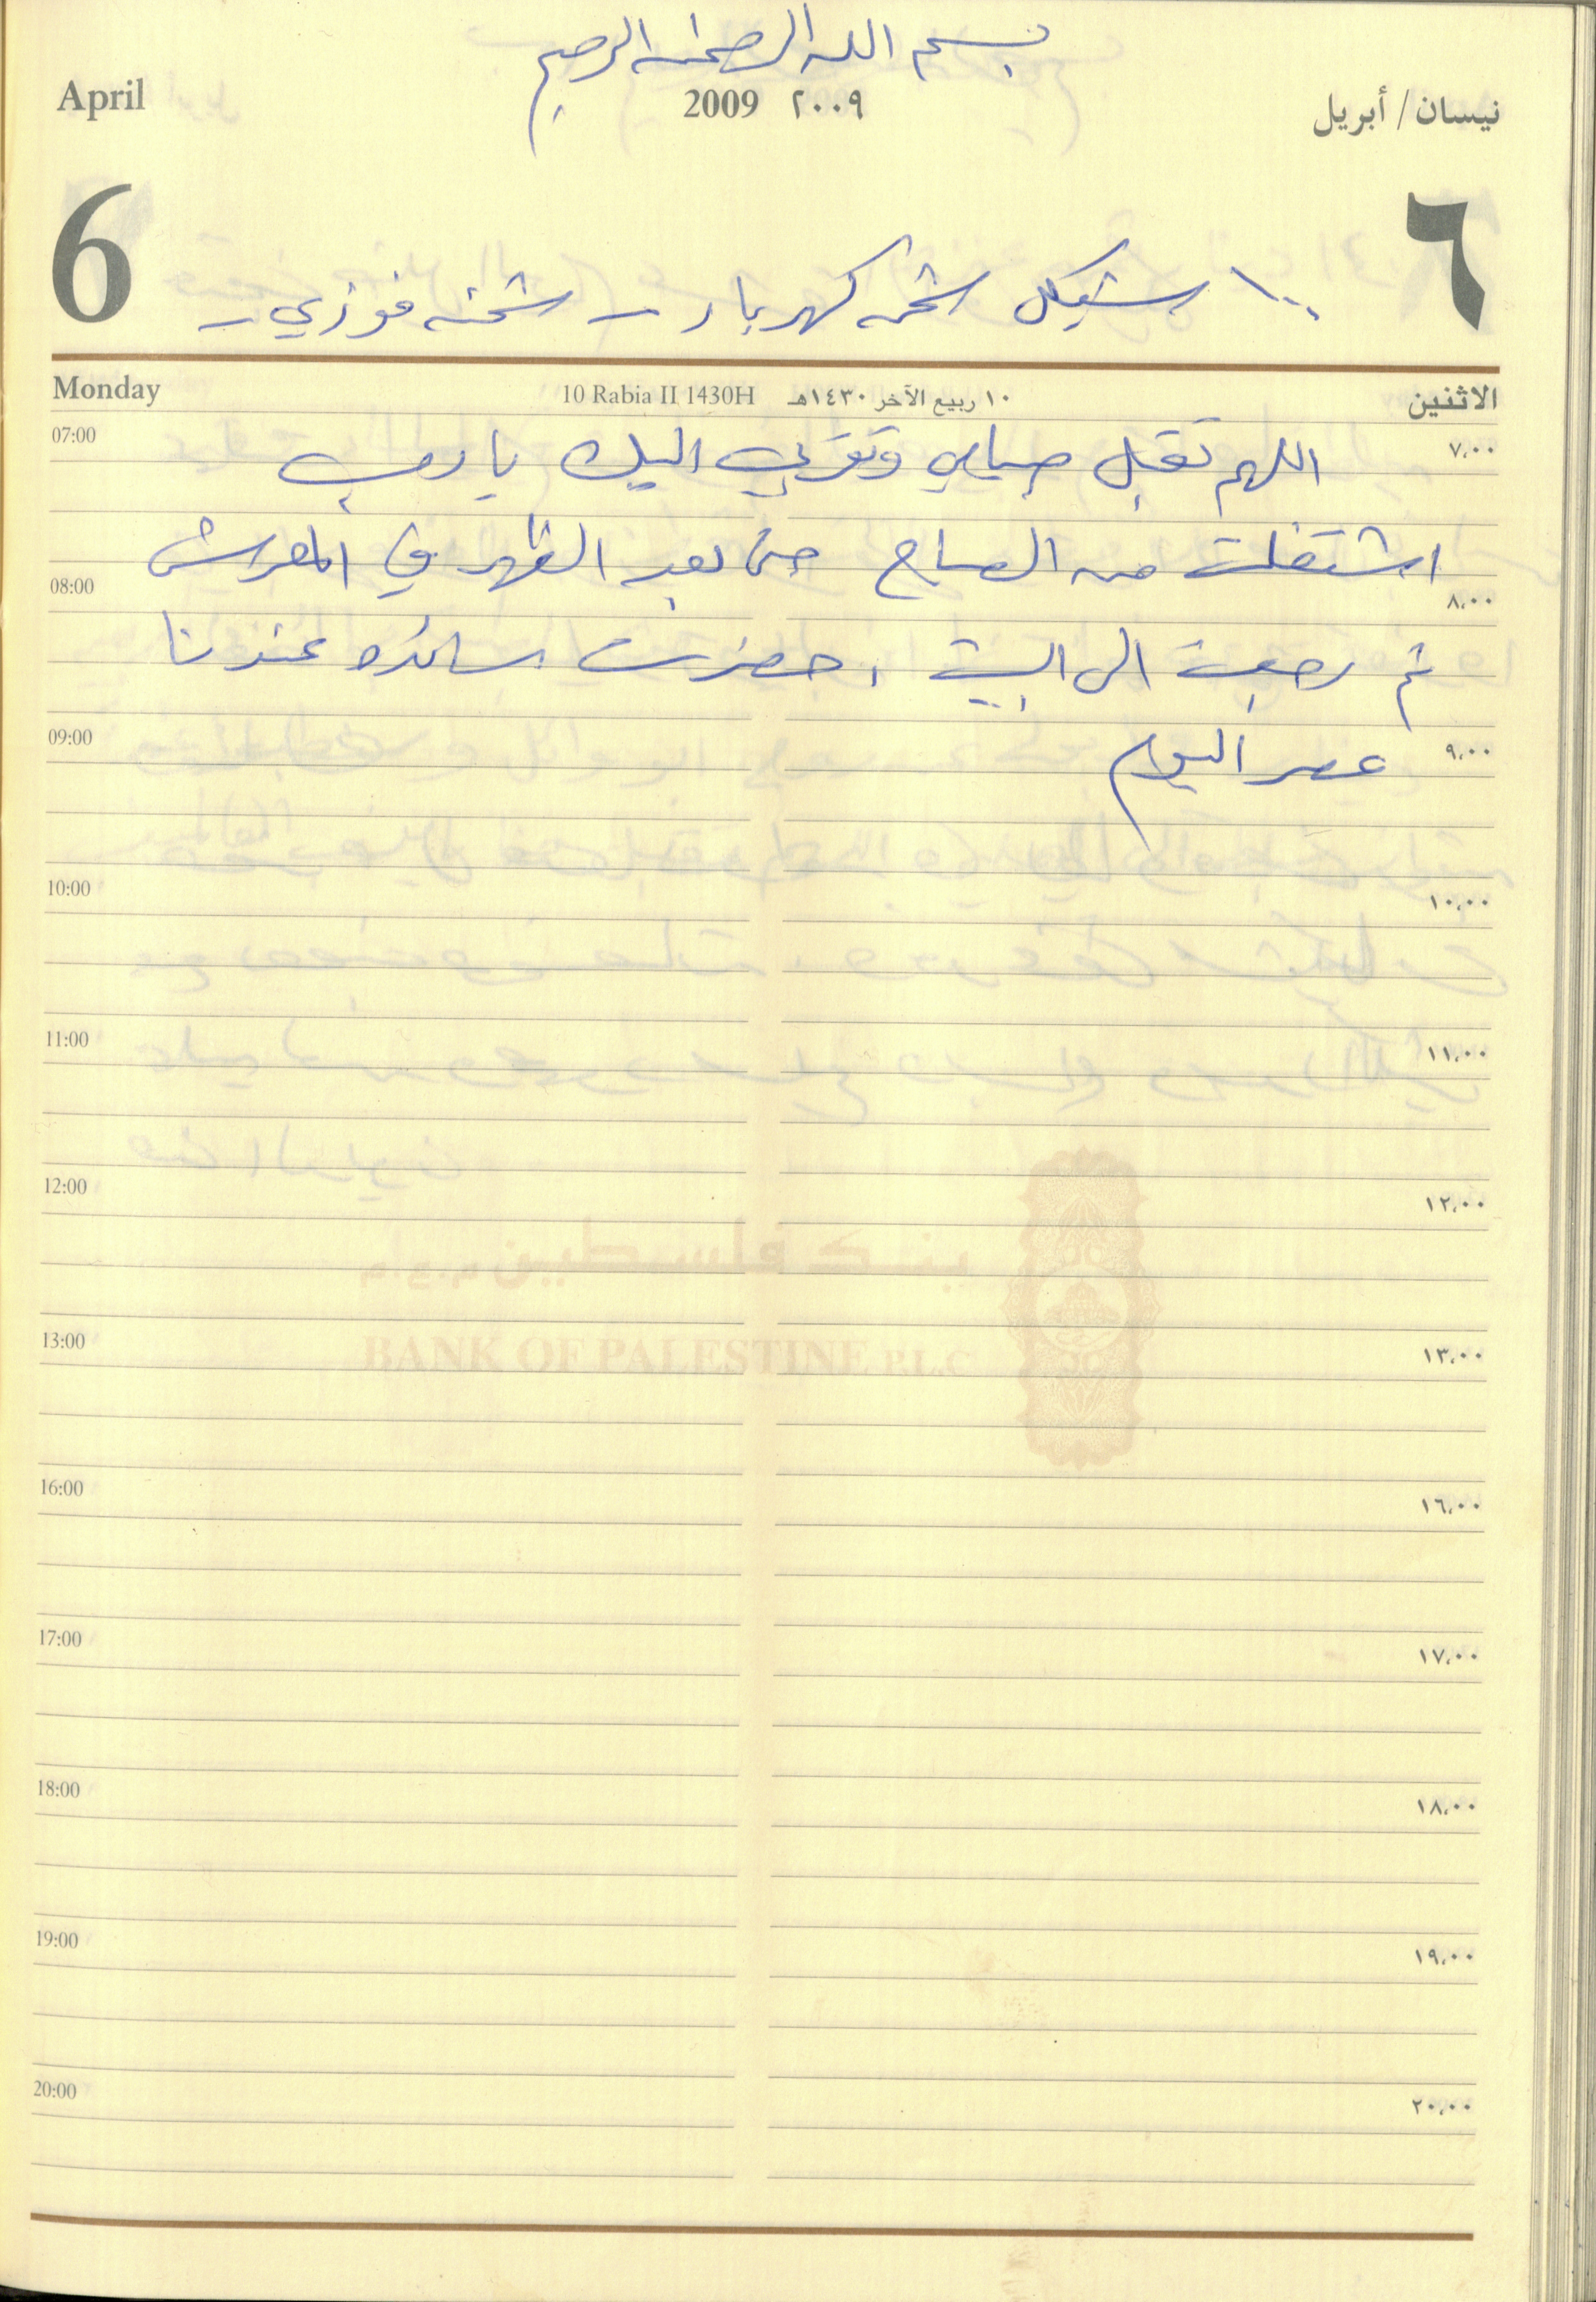 بسم الله الرحمن الرحيم
April 2009 ٢٠٠٩ نيسان / أبريل
6 ٦
١٠٠ شيكل شحن كهرباء - شحنه فوزي -
Monday 10 Rabia II 1430H ١٠ ربيع الآخر ١٤٣٠هـ الاثنين
07:00 ٧,٠٠
اللهم تقبل صيامي وتقربي اليك يا رب
اشتغلت من الصباح حتى بعد الظهر في المعرش
08:00 ٨,٠٠
ثم رجعت الى البيت ، حضرت ساندة عندنا
09:00 ٩,٠٠
عصر اليوم
10:00 ١٠,٠٠
11:00 ١١,٠٠
12:00 ١٢,٠٠
بنك فلسطين م.ع.م
13:00 ١٣,٠٠
BANK OF PALESTINE P.L.C
16:00 ١٦,٠٠
17:00 ١٧,٠٠
18:00 ١٨,٠٠
19:00 ١٩,٠٠
20:00 ٢٠,٠٠